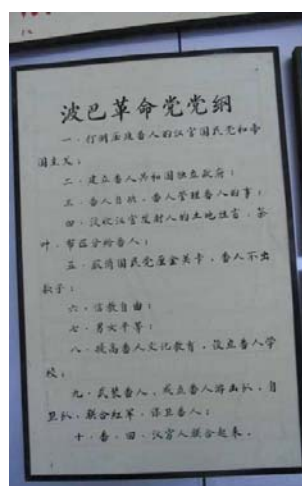 波巴革命党党纲
一·打倒压迫番人的汉官国民党和帝
国主义；
二·建立番人共和国独立政府；
三·番人自决，番人管理番人的事；
四·没收汉官发财人的土地住宅，茶
叶，布匹分给番人；
五·取消国民党厘金关卡，番人不出
款子；
六·信教自由；
七·男女平等；
八·提高番人文化教育，设立番人学
校；
九·武装番人，成立番人游击队，自
卫队，联合红军，保卫番人；
十·番·回·汉穷人联合起来。